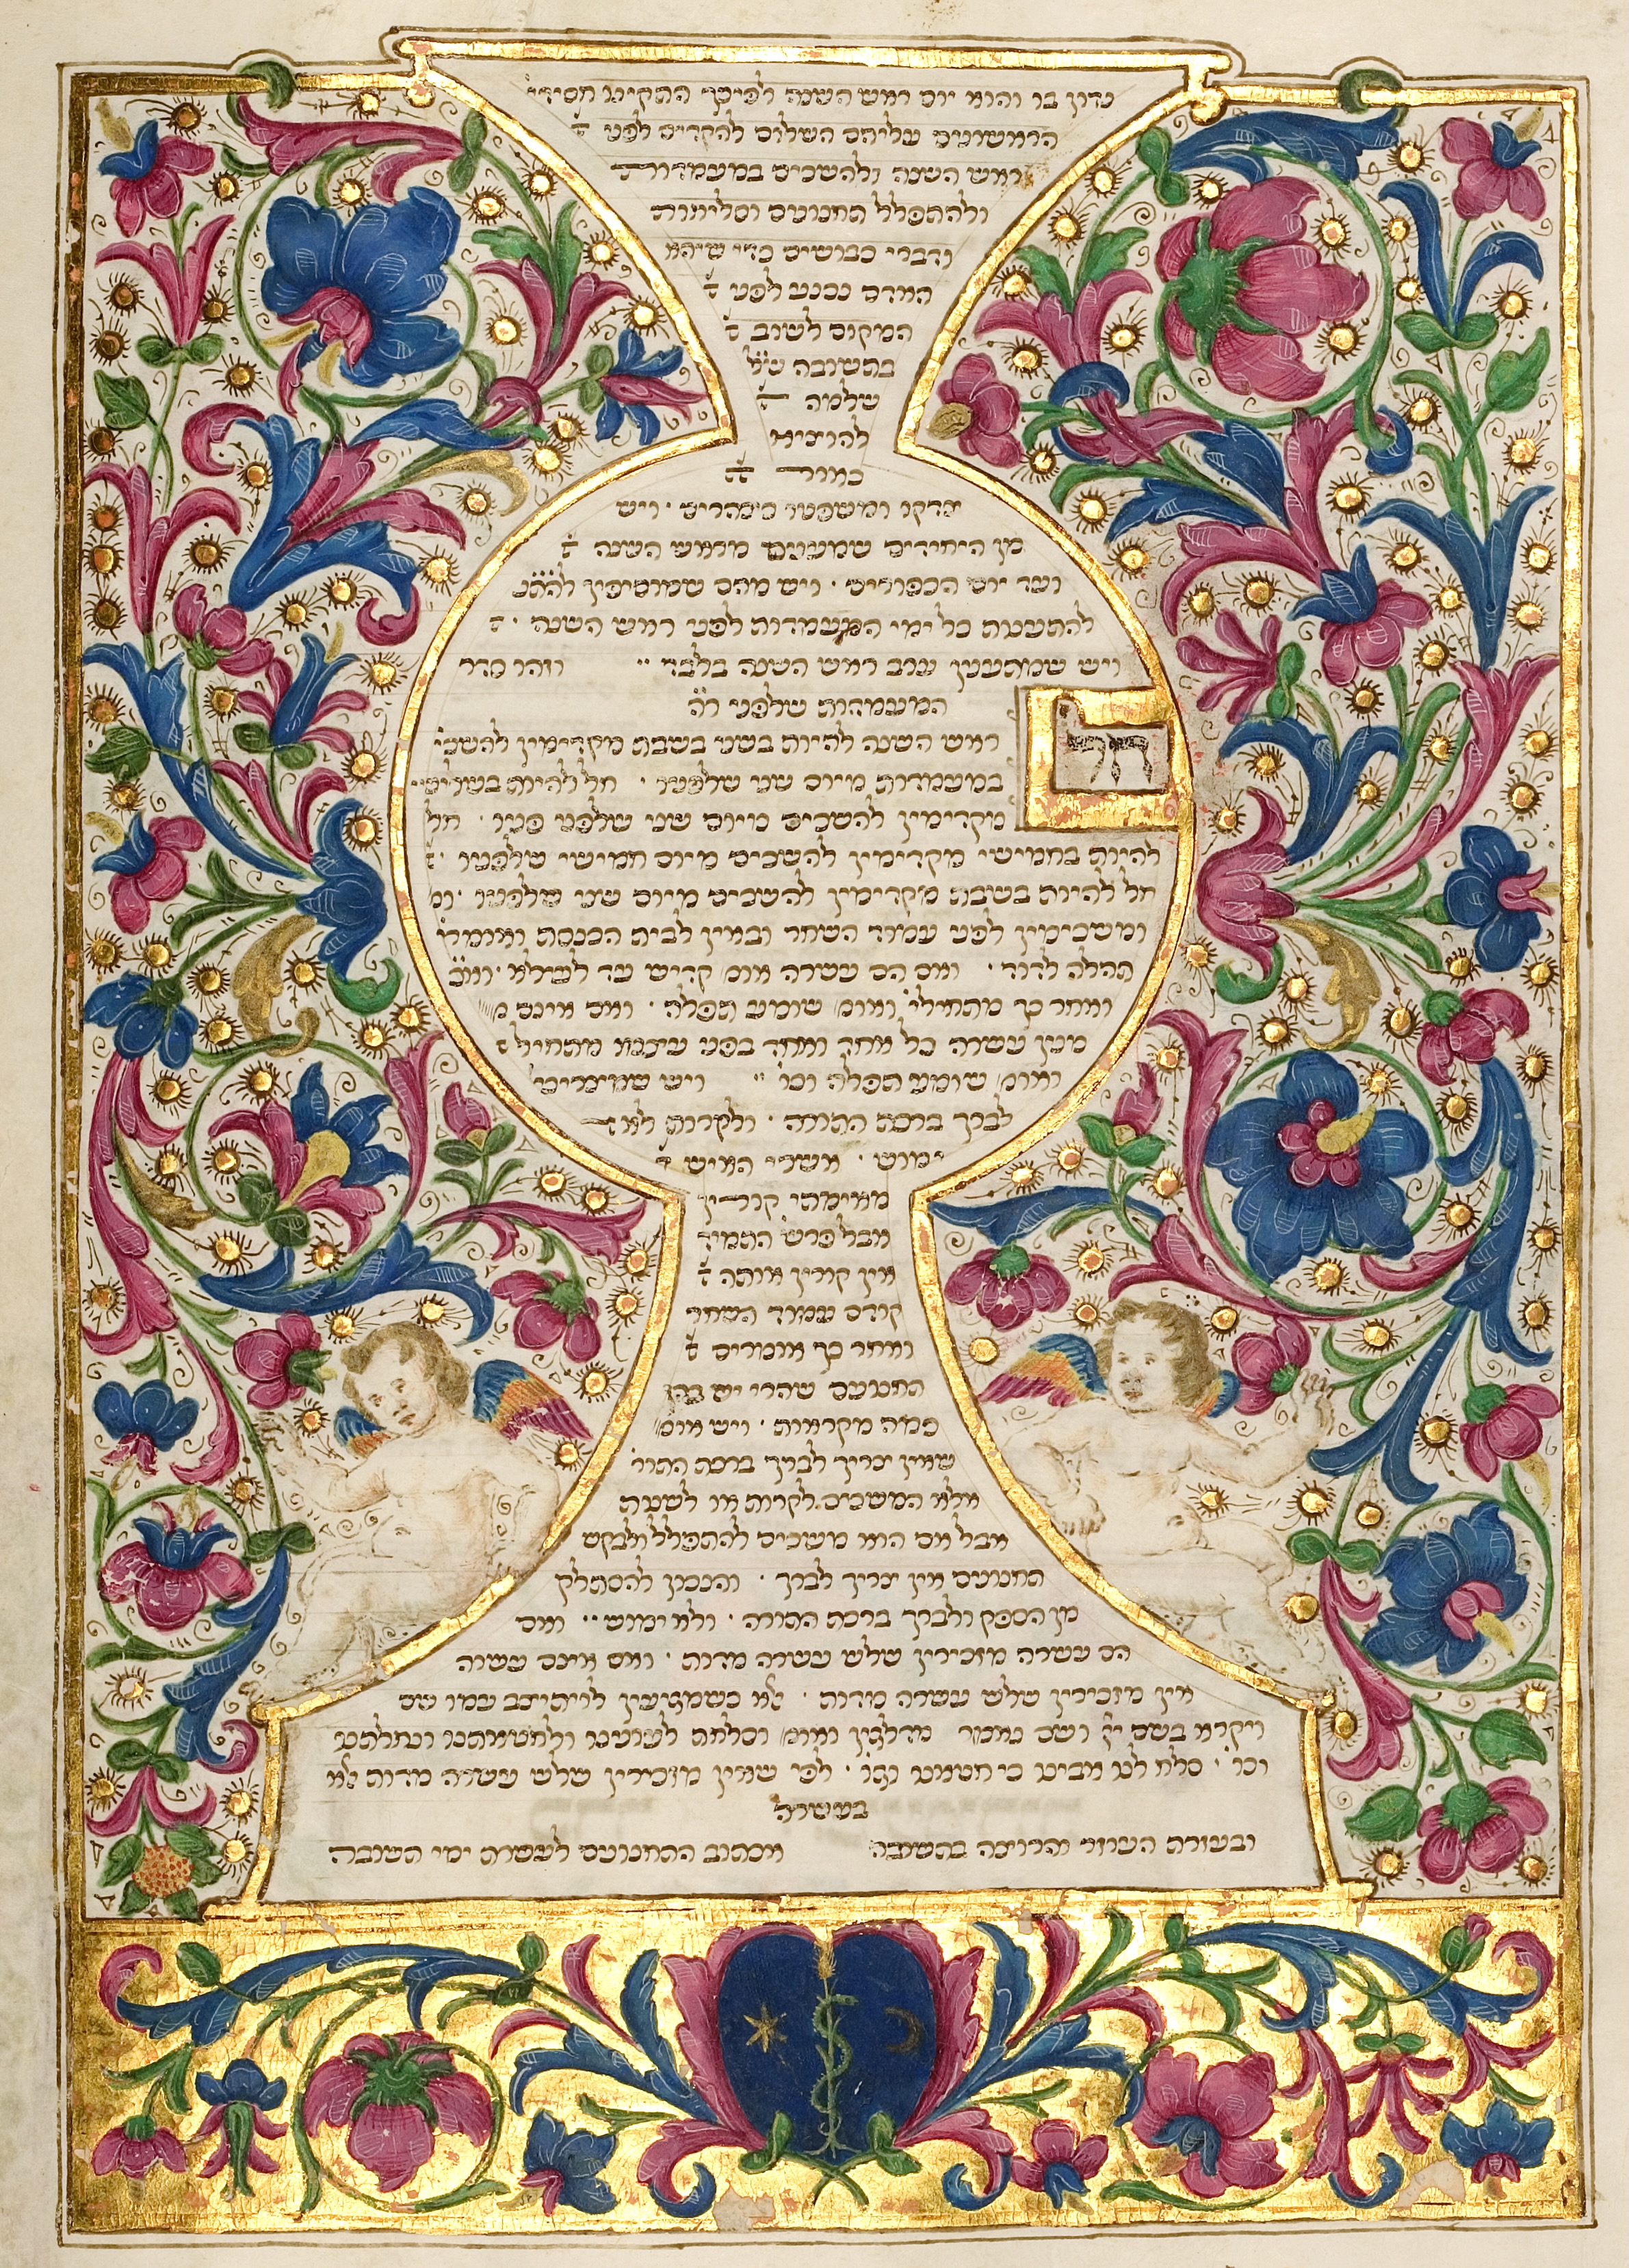 נדון בו והוא יום ראש השנה לפיכך התקינו חסידי
הראשונים עליהם השלום להקדים לפני
ראש השנה ולהשכים במעמדות
ולהתפלל תחנונים וסליחות
ודברי כבושים כדי שיהא
האדם נכנע לפני
המקום לשוב
בתשובה
שלמה
להוציא
כאור
צדקו ומשפטו כצהרים · ויש
מן היחידים שמתענים מראש השנה
ועד יום הכפורים · ויש מהם שמוסיפין
להתענות כל ימי המעמדות לפני ראש השנה ·
ויש שמתענין ערב ראש השנה בלבד ·· וזהו סדר
המעמדות שלפני ר״ה
חל
ראש השנה להיות בשני בשבת מקדימין להשכי׳
במעמדות מיום שני שלפניו · חל להיות בשלישי
מקדימין להשכים מיום שני שלפני פניו · חל
להיות בחמישי מקדימין להשכים מיום חמישי שלפניו ·
חל להיות בשבת מקדימין להשכים מיום שני שלפניו ·
ומשכימין לפני עמוד השחר ובאין לבית הכנסת ואומרי׳
תהלה לדוד · ואם הם עשרה אומ׳ קדיש עד לעילא ·
ואחר כך מתחילי׳ ואומ׳ שומע תפלה · ואם אינם
מנין עשרה כל אחד ואחד בפני עצמו מתחיל
ואומ׳ שומע תפלה וכו׳ ·· ויש שמצריכי׳
לברך ברכת התורה · ולקרות לא
ימוש · אשרי האיש
מאימתי קורין
אבל פרש׳ התמיד
אין קורין אותה
קודם עמוד השחר
ואחר כך אומרים
תחנונים שהרי יש בהן
כמה מקראות · ויש אומ׳
שאין צריך לברך ברכת התור׳
אלא המשכים לקרות או לשנות
אבל אם הוא משכים להתפלל ולבקש
תחנונים אין צריך לברך · והנכון להסתלק
מן הספק ולברך ברכת התורה · ולא ימוש ·· ואם
הם עשרה מזכירין שלש עשרה מדות · ואם אינם עשרה
אין מזכירין שלש עשרה מדות · אלא כשמגיעין לויתיצב עמו שם
ויקרא בשם יי׳ ושם נאמר מדלגין ואומ׳ וסלחת לעוננו ולחטאתנו ונחלתנו
וכו׳ · סלח לנו אבינו כי חטאנו וגו׳ · לפי שאין מזכירין שלש עשרה מדות אלא
בעשרה
ובעזרת העוזר והרוצה בתשובה אכתוב התחנונים לעשרת ימי תשובה